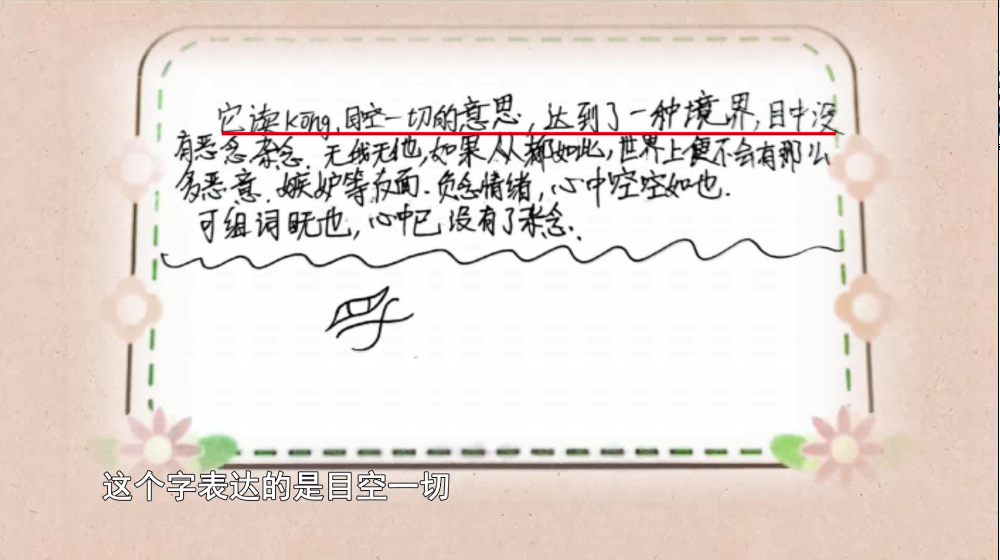 它读kōng,目空一切的意思,达到了一种境界,目中没
有恶念杂念.无线无他,如果人人都如此,世界上便不会有那么
多恶意.嫉妒等反面.负念情绪,心中空空如也.
可组词 也,心中已没有了杂念.
这个字表达的是目空一切